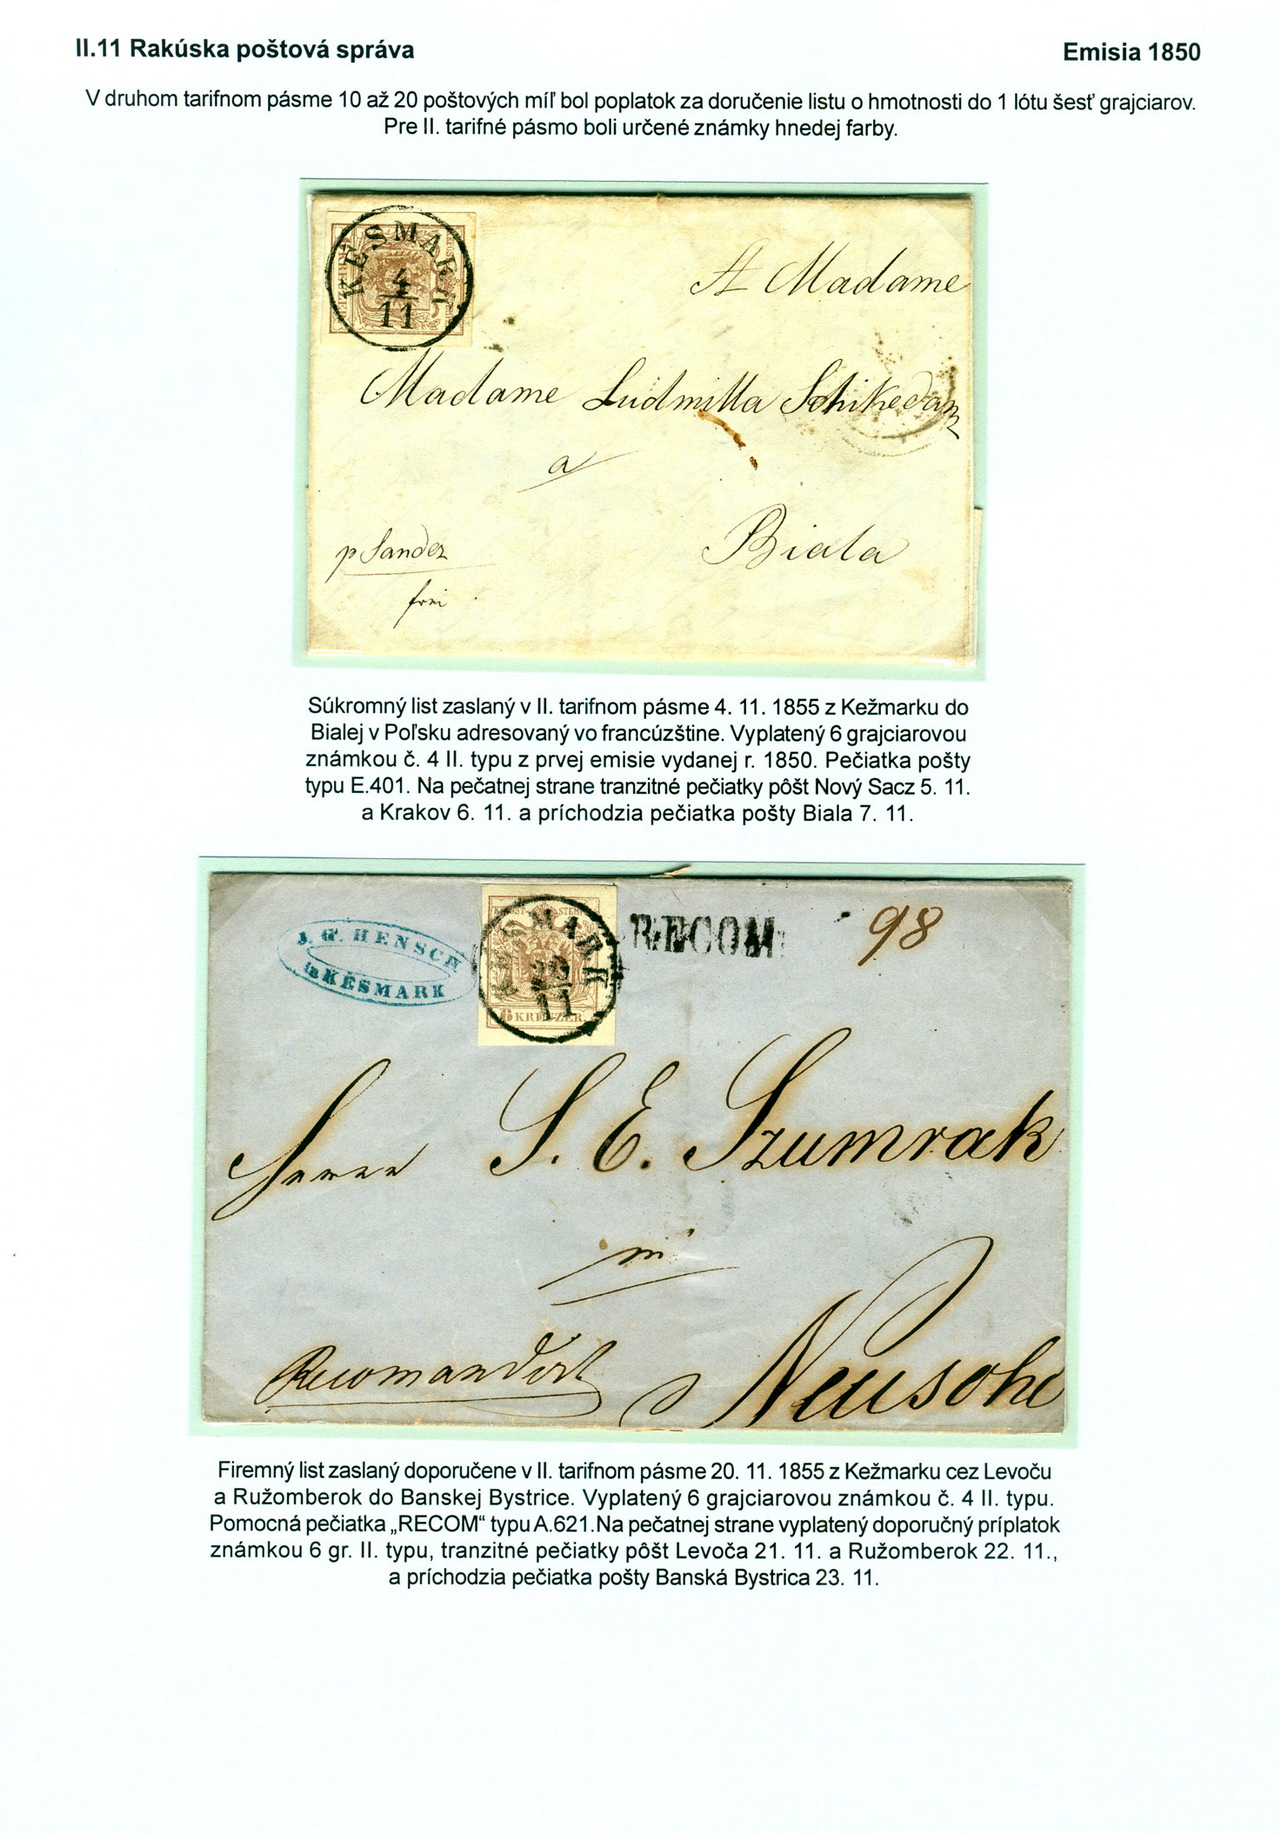 II.11 Rakúska poštová správa
Emisia 1850
V druhom tarifnom pásme 10 až 20 poštových míľ bol poplatok za doručenie listu o hmotnosti do 1 lótu šesť grajciarov.
Pre II. tarifné pásmo boli určené známky hnedej farby.
KÉSMARK
4
11
A Madame
Madame Ludmilla Schikedanz
a
Biala
p Sandez
frei
Súkromný list zaslaný v II. tarifnom pásme 4. 11. 1855 z Kežmarku do
Bialej v Poľsku adresovaný vo francúzštine. Vyplatený 6 grajciarovou
známkou č. 4 II. typu z prvej emisie vydanej r. 1850. Pečiatka pošty
typu E.401. Na pečatnej strane tranzitné pečiatky pôšt Nový Sacz 5. 11.
a Krakov 6. 11. a príchodzia pečiatka pošty Biala 7. 11.
J. G. HENSCH
in KÉSMARK
KÉSMARK
20
11
6 KREUZER
RECOM:
98
Herrn S. E. Szumrak
in
Recomandirt
Neusohl
Firemný list zaslaný doporučene v II. tarifnom pásme 20. 11. 1855 z Kežmarku cez Levoču
a Ružomberok do Banskej Bystrice. Vyplatený 6 grajciarovou známkou č. 4 II. typu.
Pomocná pečiatka „RECOM“ typu A.621.Na pečatnej strane vyplatený doporučný príplatok
známkou 6 gr. II. typu, tranzitné pečiatky pôšt Levoča 21. 11. a Ružomberok 22. 11.,
a príchodzia pečiatka pošty Banská Bystrica 23. 11.